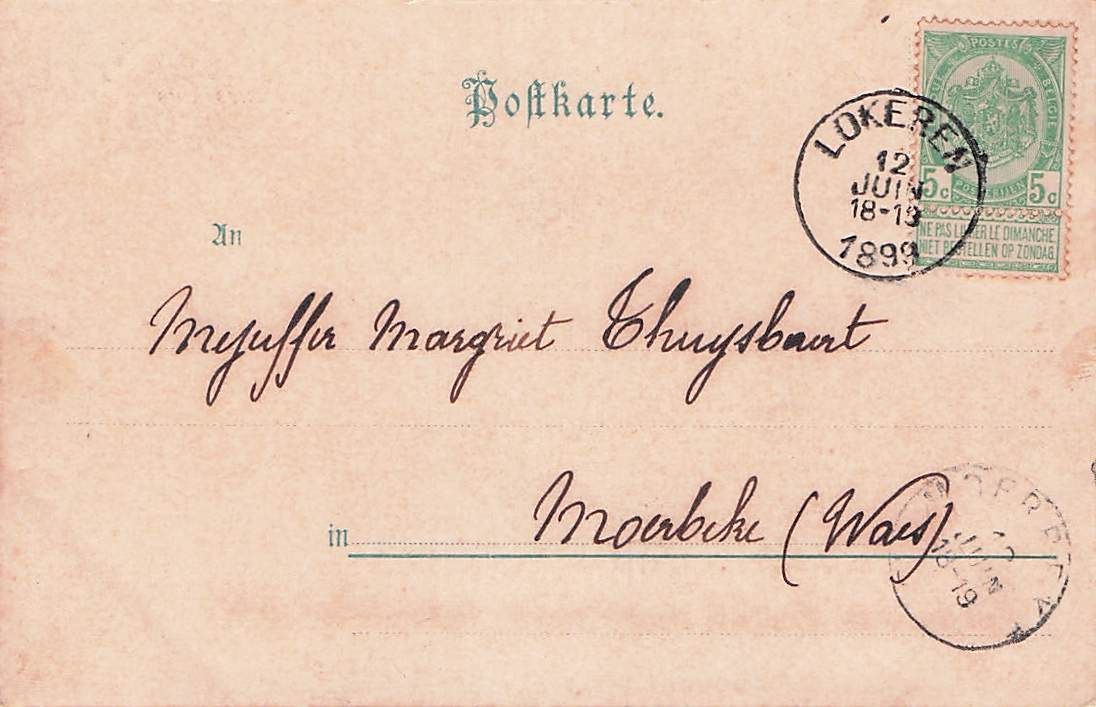 Postkarte.
POSTES
BELGIE
5c POSTERIJEN 5c
NE PAS LIVRER LE DIMANCHE
NIET BESTELLEN OP ZONDAG.
LOKEREN
12
JUIN
18-19
1899
An
Mejuffer Margriet Thuysbaert
in Moerbeke (Waes)
JUIN
18-19